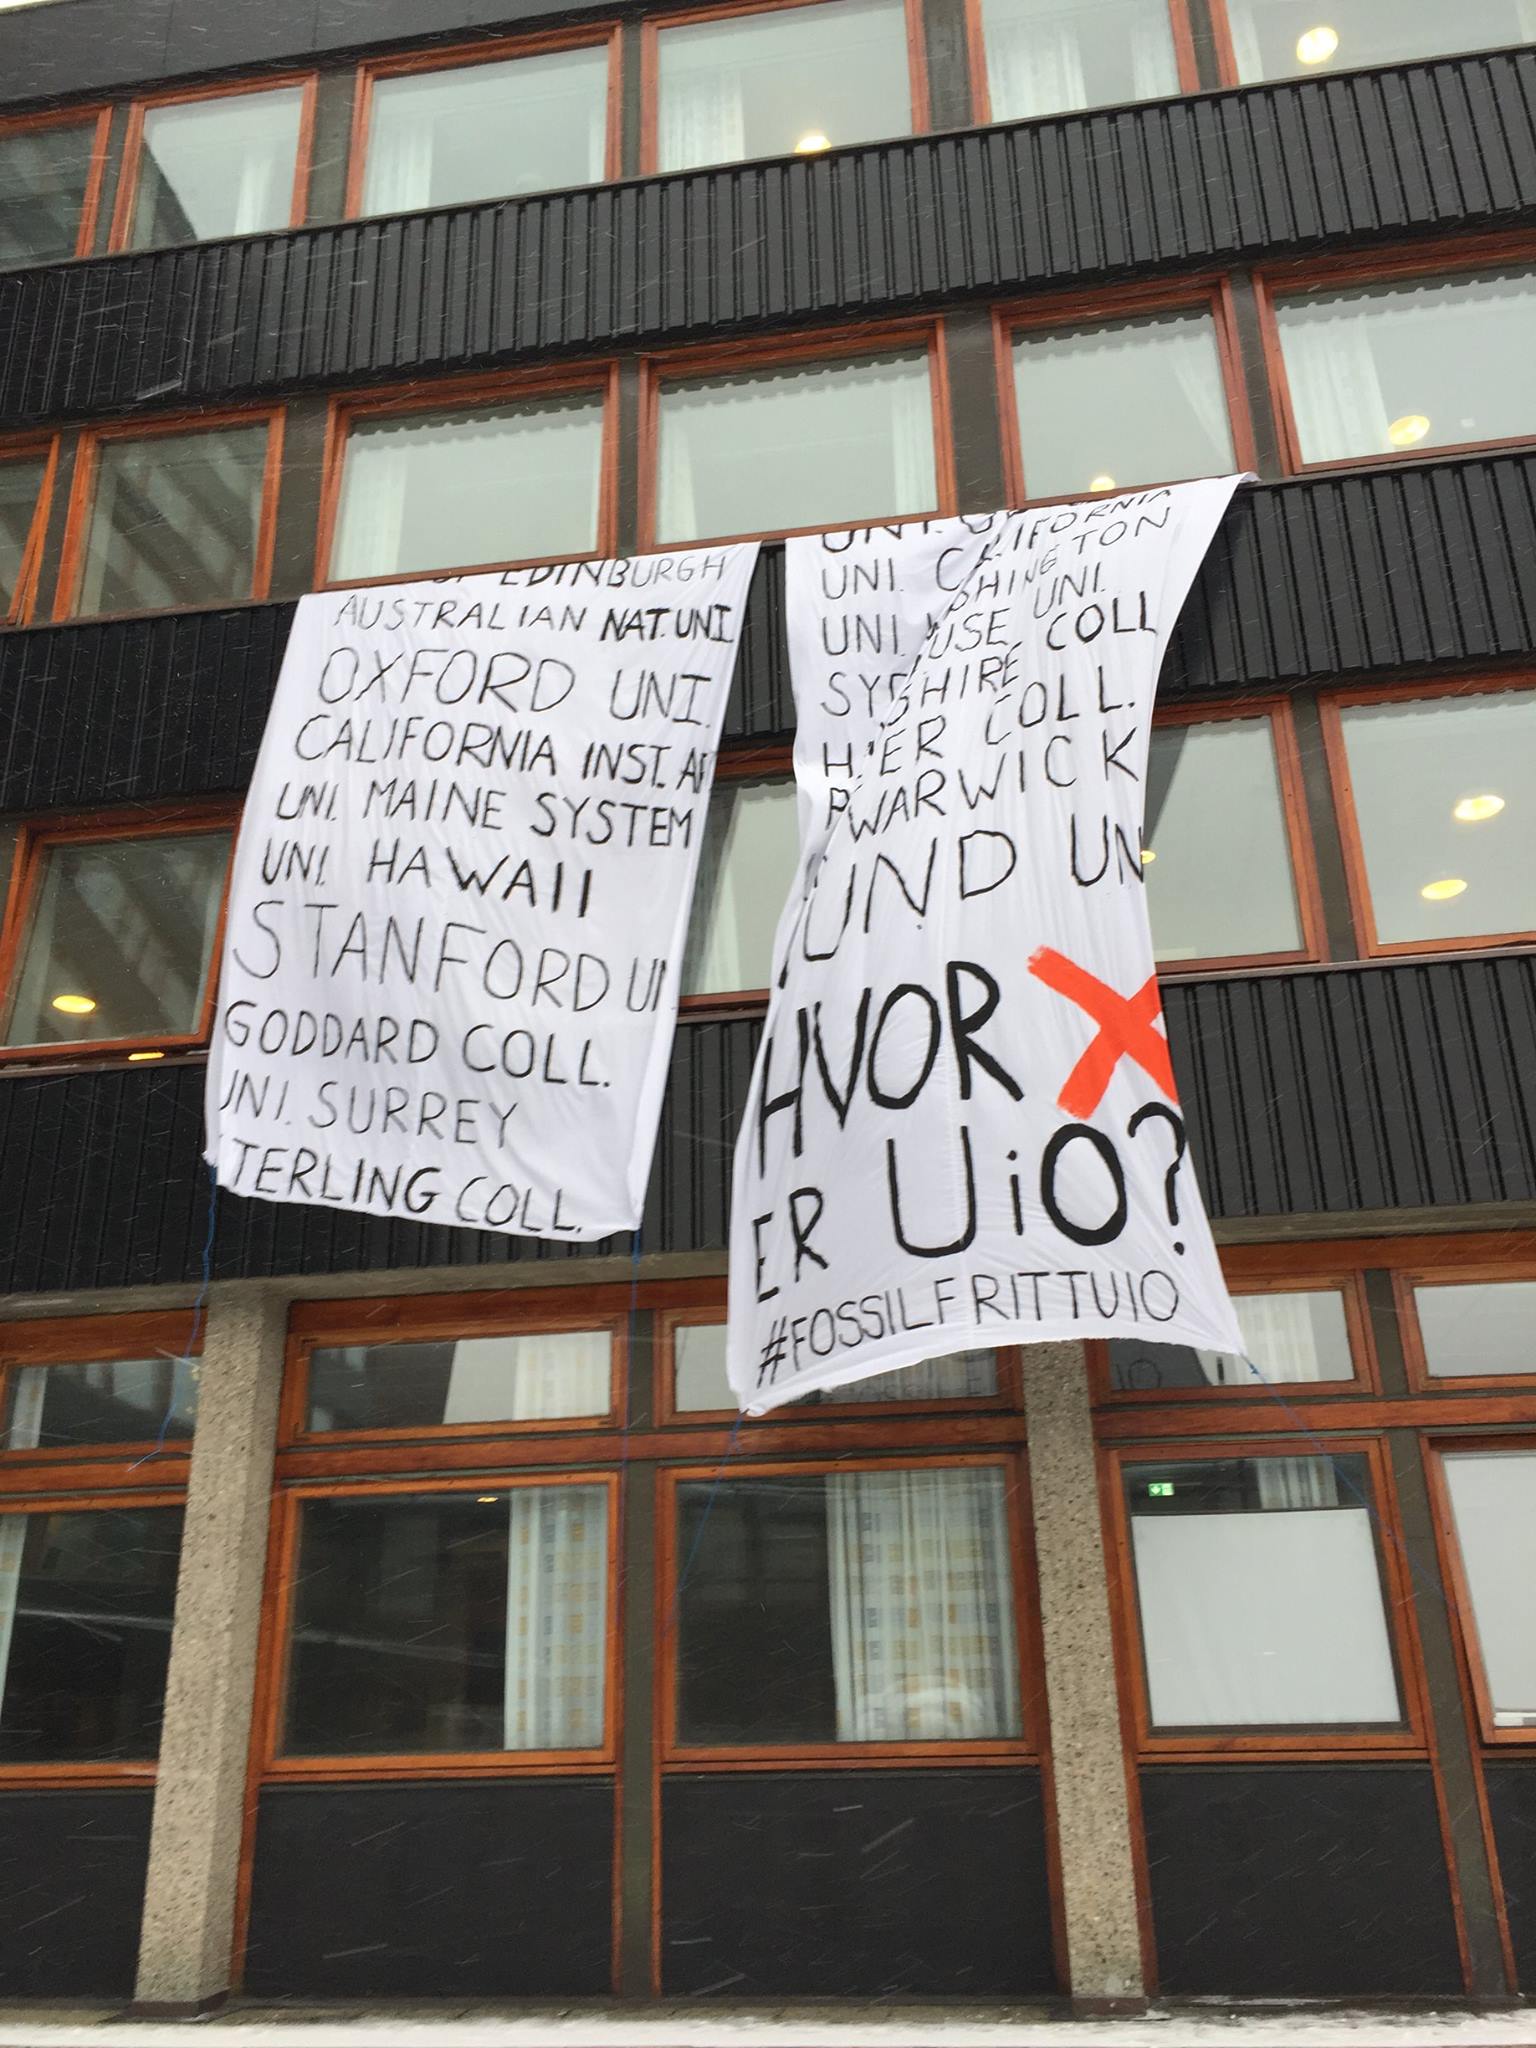 EDINBURGH
AUSTRALIAN NAT. UNI
OXFORD UNI.
CALIFORNIA INST. AR
UNI. MAINE SYSTEM
UNI. HAWAII
STANFORD UN
GODDARD COLL.
UNI. SURREY
TERLING COLL.
UNI.
UNI. CALIFORNIA
UNI. SHINGTON
SY USE UNI.
H SHIRE COLL
P ER COLL.
WARWICK
UND UN
HVOR X
ER UiO?
#FOSSILFRITTUIO